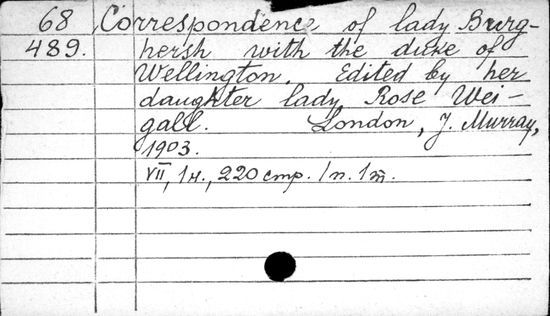 68 Correspondence of lady Burg-
489. hersh with the duke of
Wellington. Edited by her
daughter lady Rose Wei-
gall. London, J. Murray,
1903.
VII, 1н., 220 стр. 1п. 1т.